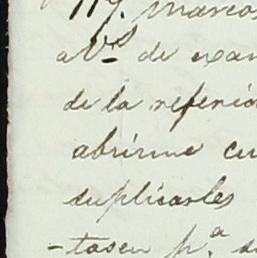 117. marcos
a Vs. de exam
de la referid
abrirme cu
suplicarles
-tasen p.a s